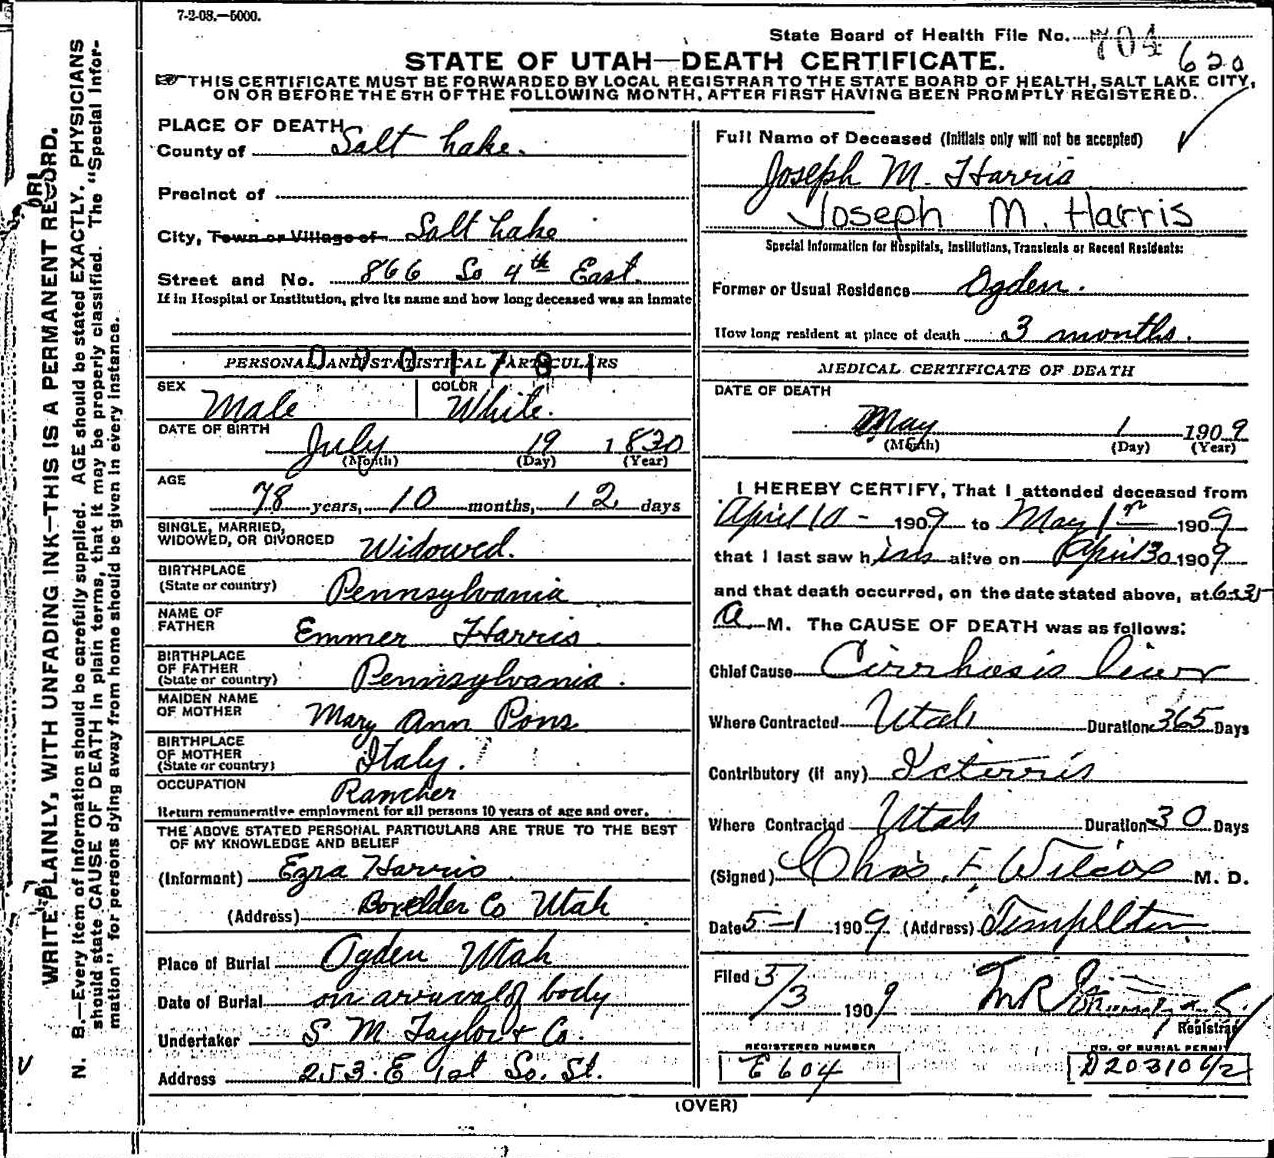 7-2-08.—5000.
State Board of Health File No. 704 620
STATE OF UTAH—DEATH CERTIFICATE.
THIS CERTIFICATE MUST BE FORWARDED BY LOCAL REGISTRAR TO THE STATE BOARD OF HEALTH, SALT LAKE CITY,
ON OR BEFORE THE 5TH OF THE FOLLOWING MONTH, AFTER FIRST HAVING BEEN PROMPTLY REGISTERED.
WRITE PLAINLY, WITH UNFADING INK—THIS IS A PERMANENT RECORD.
N. B.—Every item of information should be carefully supplied. AGE should be stated EXACTLY. PHYSICIANS
should state CAUSE OF DEATH in plain terms, that it may be properly classified. The "Special Infor-
mation" for persons dying away from home should be given in every instance.
PLACE OF DEATH
County of Salt Lake.
Precinct of
City, Town or Village of Salt Lake
Street and No. 866 So 4th East
If in Hospital or Institution, give its name and how long deceased was an inmate
PERSONAL AND STATISTICAL PARTICULARS
SEX Male COLOR White.
DATE OF BIRTH
July 19 1830
(Month) (Day) (Year)
AGE
78 years, 10 months, 12 days
SINGLE, MARRIED,
WIDOWED, OR DIVORCED Widowed.
BIRTHPLACE
(State or country) Pennsylvania
NAME OF
FATHER Emmer Harris
BIRTHPLACE
OF FATHER
(State or country) Pennsylvania.
MAIDEN NAME
OF MOTHER Mary Ann Pons
BIRTHPLACE
OF MOTHER
(State or country) Italy.
OCCUPATION Rancher
Return remunerative employment for all persons 10 years of age and over.
THE ABOVE STATED PERSONAL PARTICULARS ARE TRUE TO THE BEST
OF MY KNOWLEDGE AND BELIEF
(Informant) Ezra Harris
(Address) Boxelder Co Utah
Place of Burial Ogden Utah
Date of Burial on arrival of body
Undertaker S. M. Taylor & Co.
Address 253. E 1st So. St.
Full Name of Deceased (Initials only will not be accepted)
Joseph M. Harris
Joseph M. Harris
Special Information for Hospitals, Institutions, Transients or Recent Residents:
Former or Usual Residence Ogden.
How long resident at place of death 3 months.
MEDICAL CERTIFICATE OF DEATH
DATE OF DEATH
May 1 1909
(Month) (Day) (Year)
I HEREBY CERTIFY, That I attended deceased from
April 10 - 1909 to May 1st 1909
that I last saw him alive on April 30 1909
and that death occurred, on the date stated above, at 6:35
A M. The CAUSE OF DEATH was as follows:
Chief Cause Cirrhosis liver
Where Contracted Utah Duration 365 Days
Contributory (if any) Icterris
Where Contracted Utah Duration 30 Days
(Signed) Chas. F Wilcox M. D.
Date 5-1 1909 (Address) Templeton
Filed 3/3 1909
Registrar
REGISTERED NUMBER
E 604
NO. OF BURIAL PERMIT
D20310
(OVER)